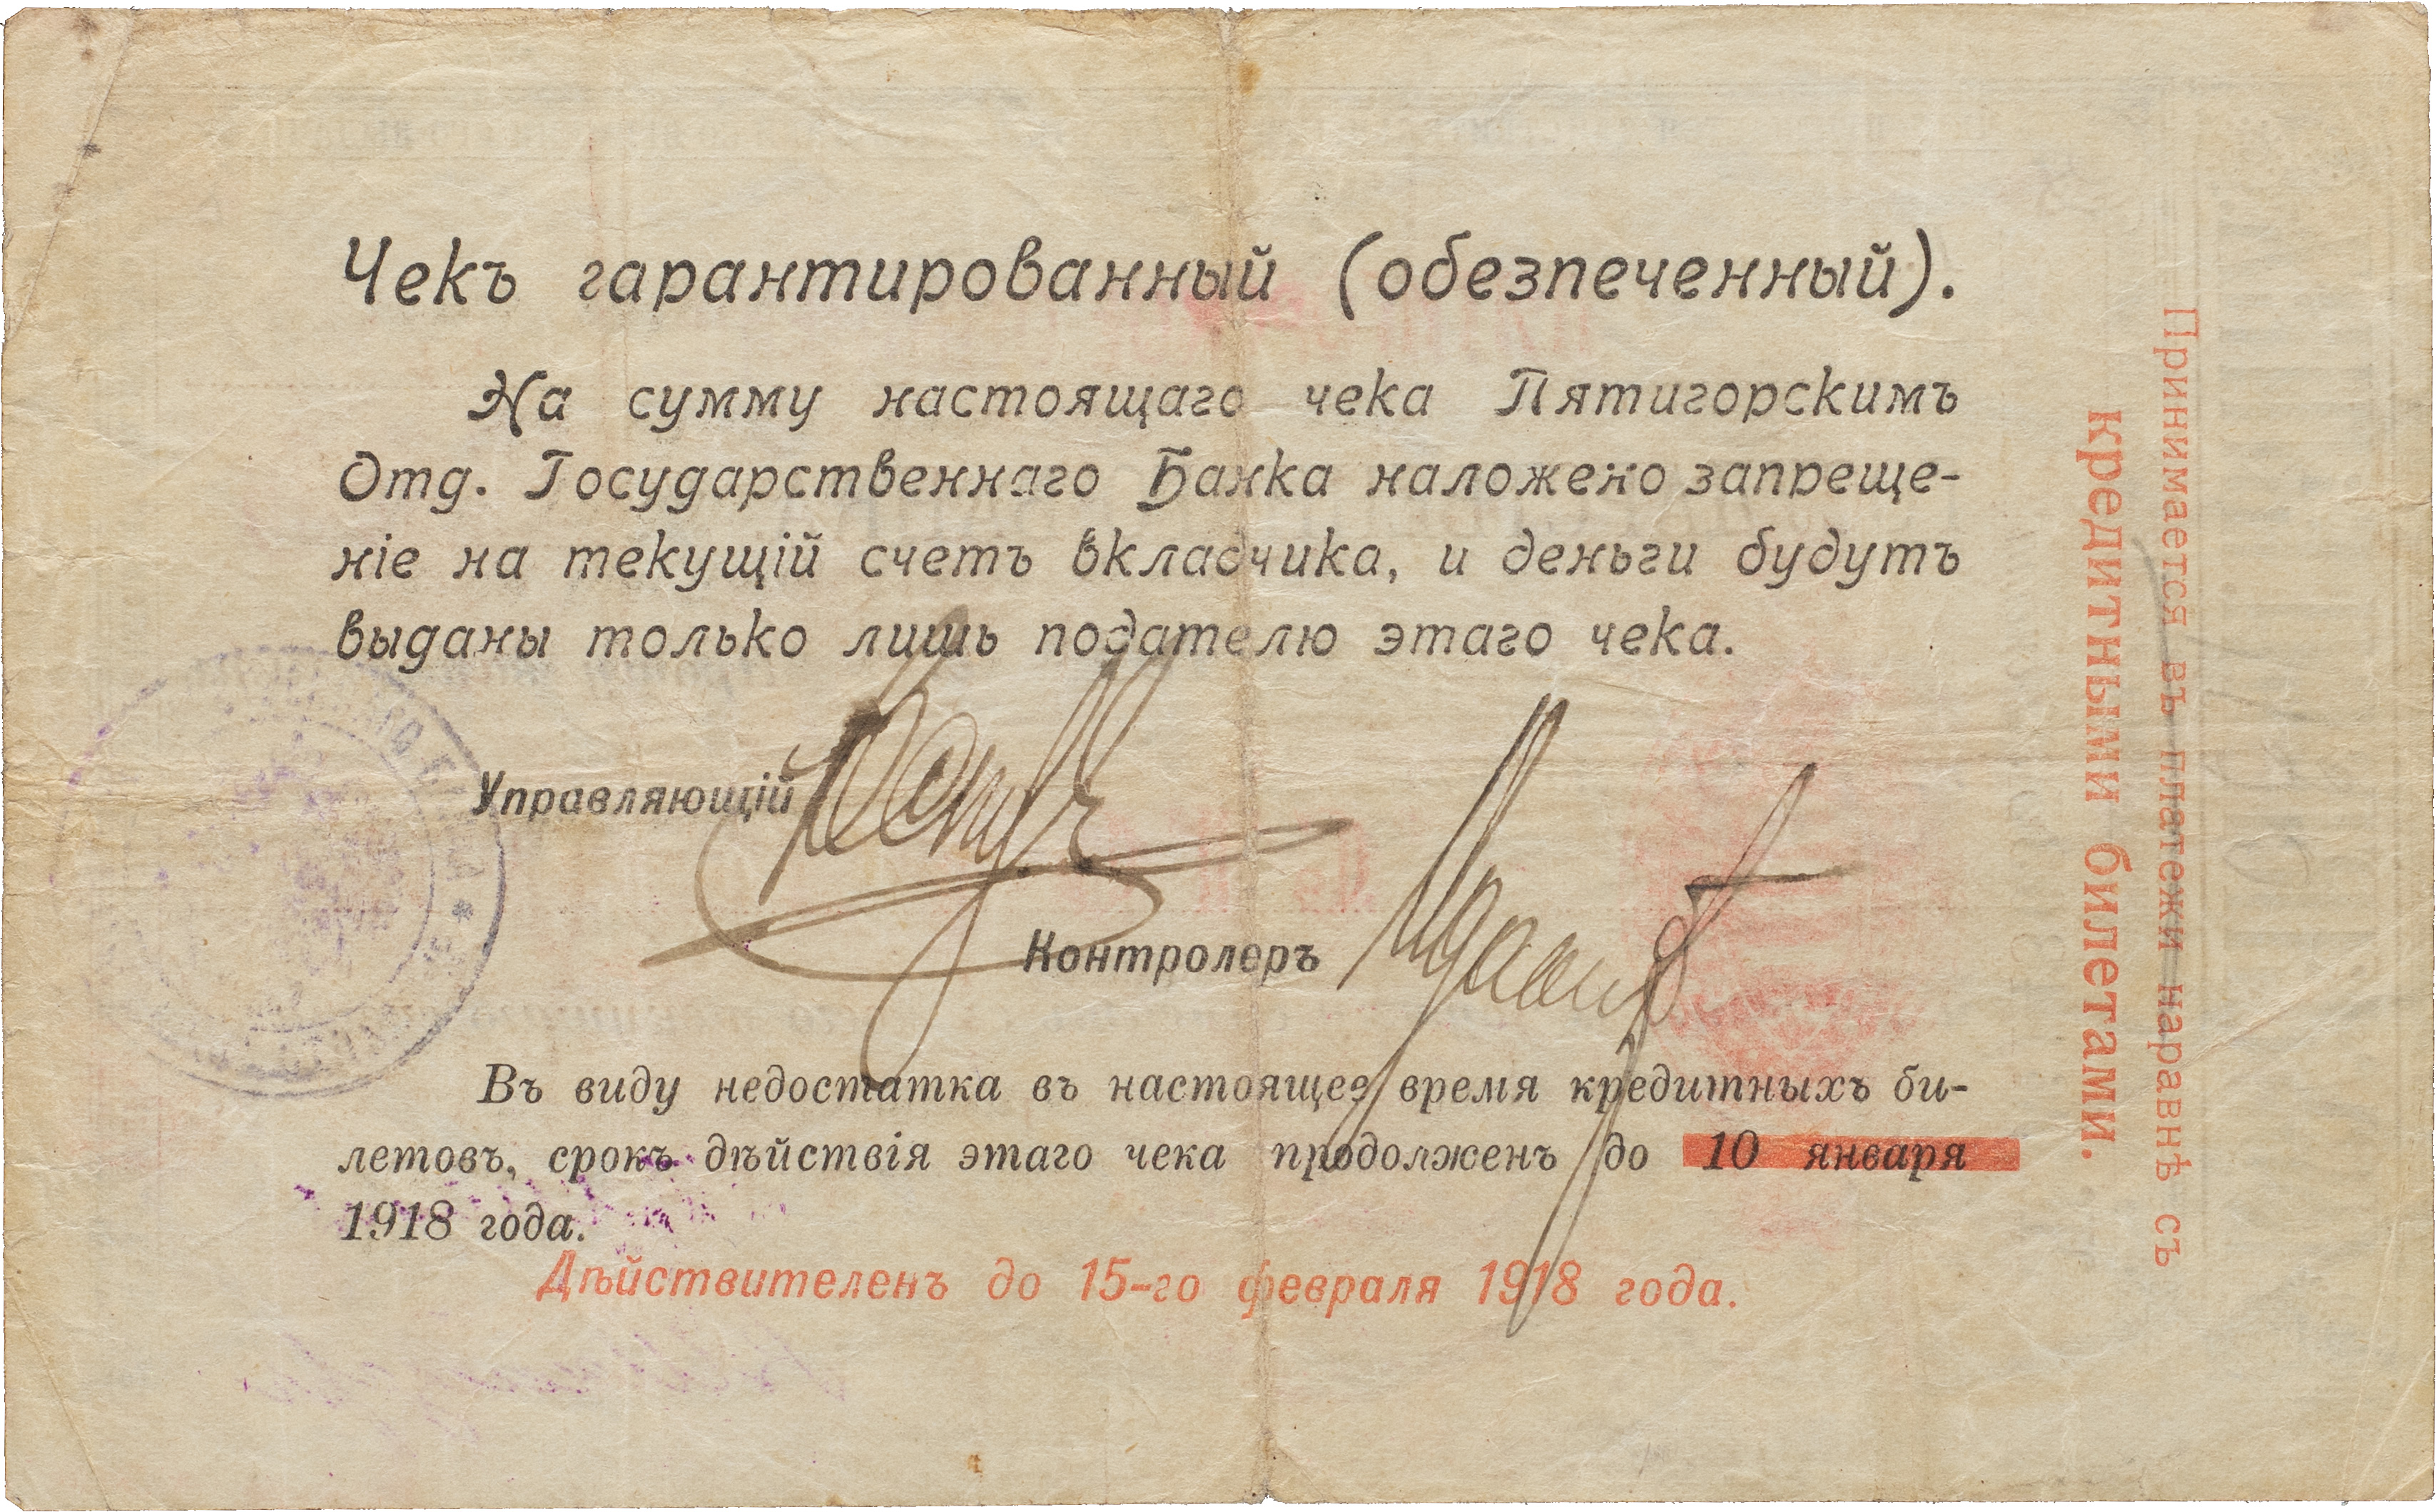 Чекъ гарантированный (обезпеченный).
На сумму настоящаго чека Пятигорскимъ
Отд. Государственнаго Банка наложено запреще-
ніе на текущій счетъ вкладчика, и деньги будутъ
выданы только лишь подателю этаго чека.
Управляющій
Контролеръ
Въ виду недостатка въ настоящее время кредитныхъ би-
летовъ, срокъ дѣйствія этаго чека продолженъ до 10 января
1918 года.
Дѣйствителенъ до 15-го февраля 1918 года.
Принимается въ платежи наравнѣ съ
кредитными билетами.